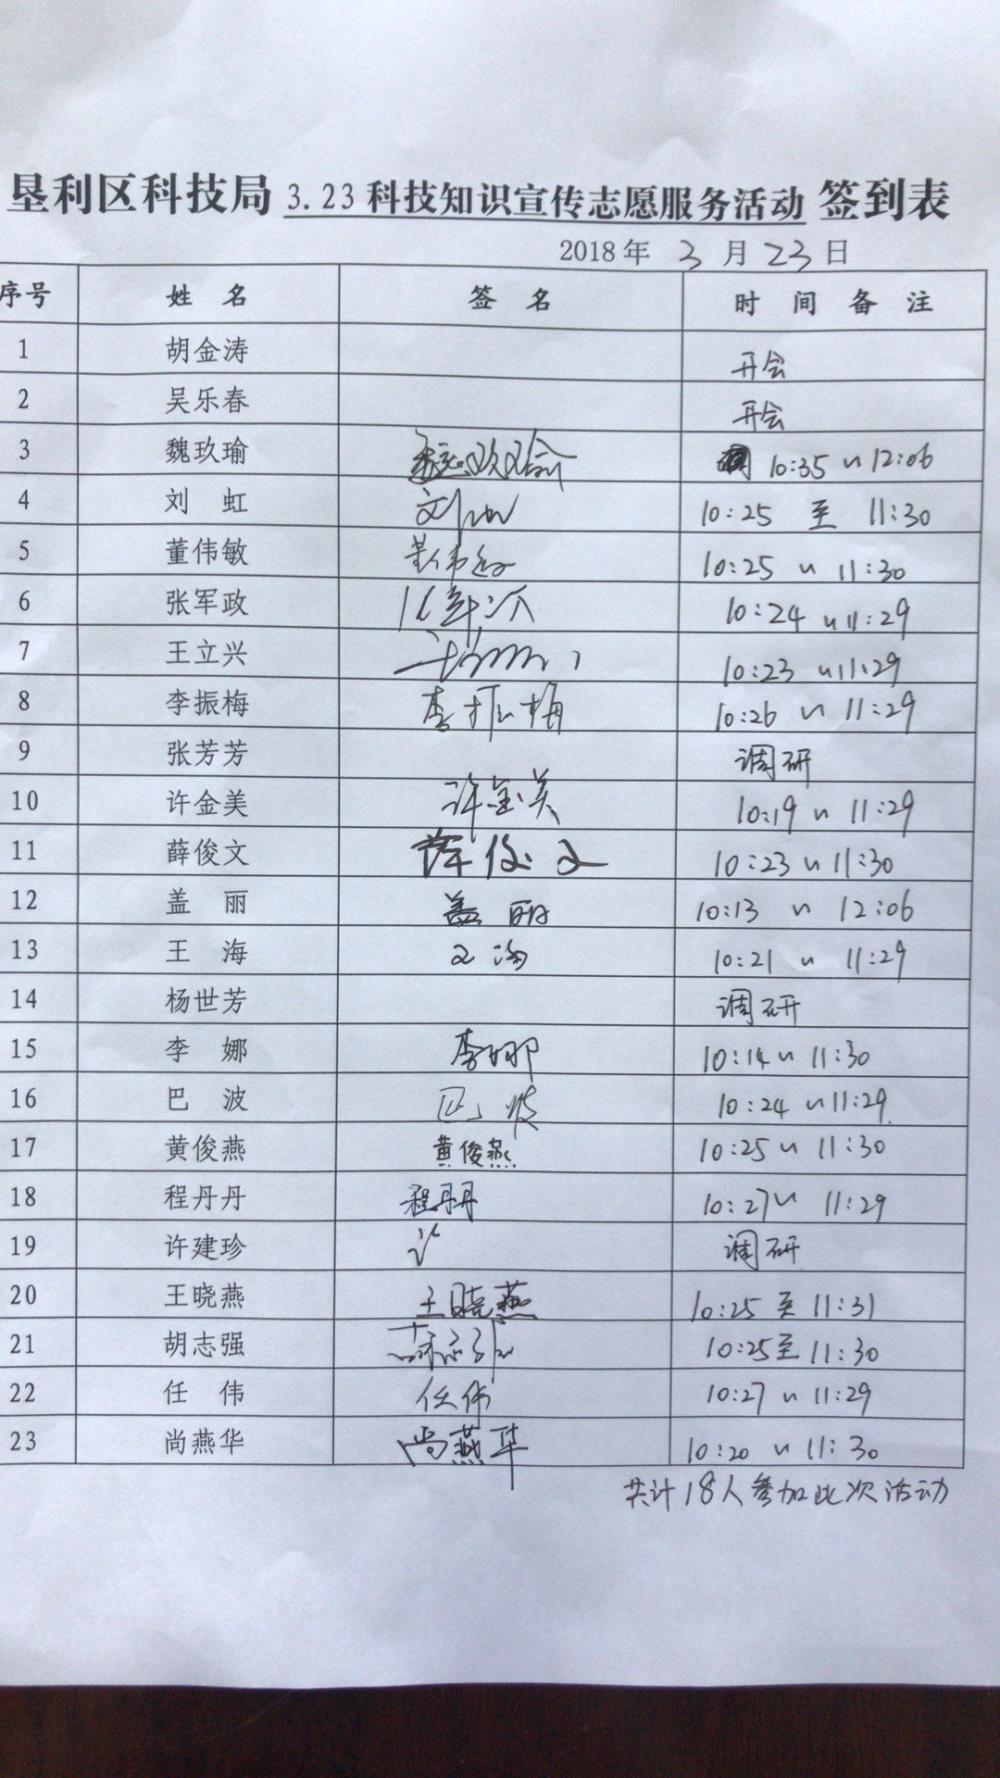 垦利区科技局 3.23科技知识宣传志愿服务活动 签到表
2018年 3 月 23 日
序号 姓 名 签 名 时 间 备 注
1 胡金涛 开会
2 吴乐春 开会
3 魏玖瑜 魏玖瑜 10:35 ~ 12:06
4 刘 虹 刘虹 10:25 至 11:30
5 董伟敏 董伟敏 10:25 ~ 11:30
6 张军政 10:24 ~ 11:29
7 王立兴 10:23 ~ 11:29
8 李振梅 李振梅 10:26 ~ 11:29
9 张芳芳 调研
10 许金美 许金美 10:19 ~ 11:29
11 薛俊文 薛俊文 10:23 ~ 11:30
12 盖 丽 盖丽 10:13 ~ 12:06
13 王 海 王海 10:21 ~ 11:29
14 杨世芳 调研
15 李 娜 李娜 10:14 ~ 11:30
16 巴 波 巴波 10:24 ~ 11:29
17 黄俊燕 黄俊燕 10:25 ~ 11:30
18 程丹丹 程丹丹 10:27 ~ 11:29
19 许建珍 调研
20 王晓燕 王晓燕 10:25 至 11:31
21 胡志强 胡志强 10:25 至 11:30
22 任 伟 任伟 10:27 ~ 11:29
23 尚燕华 尚燕华 10:20 ~ 11:30
共计18人参加此次活动